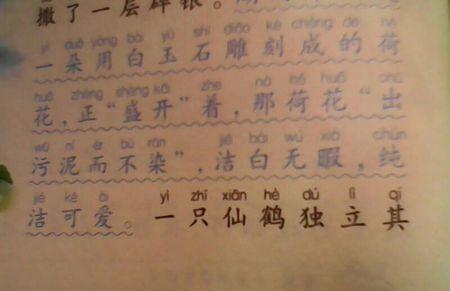 撒了一层碎银。
yì duǒ yòng bái yù shí diāo kè chéng de hé
一朵用白玉石雕刻成的荷
huā zhèng shèng kāi zhe nà hé huā chū
花，正“盛开”着，那荷花“出
wū ní ér bù rǎn jié bái wú xiá chún
污泥而不染”，洁白无暇，纯
jié kě ài yì zhī xiān hè dú lì qí
洁可爱。一只仙鹤独立其